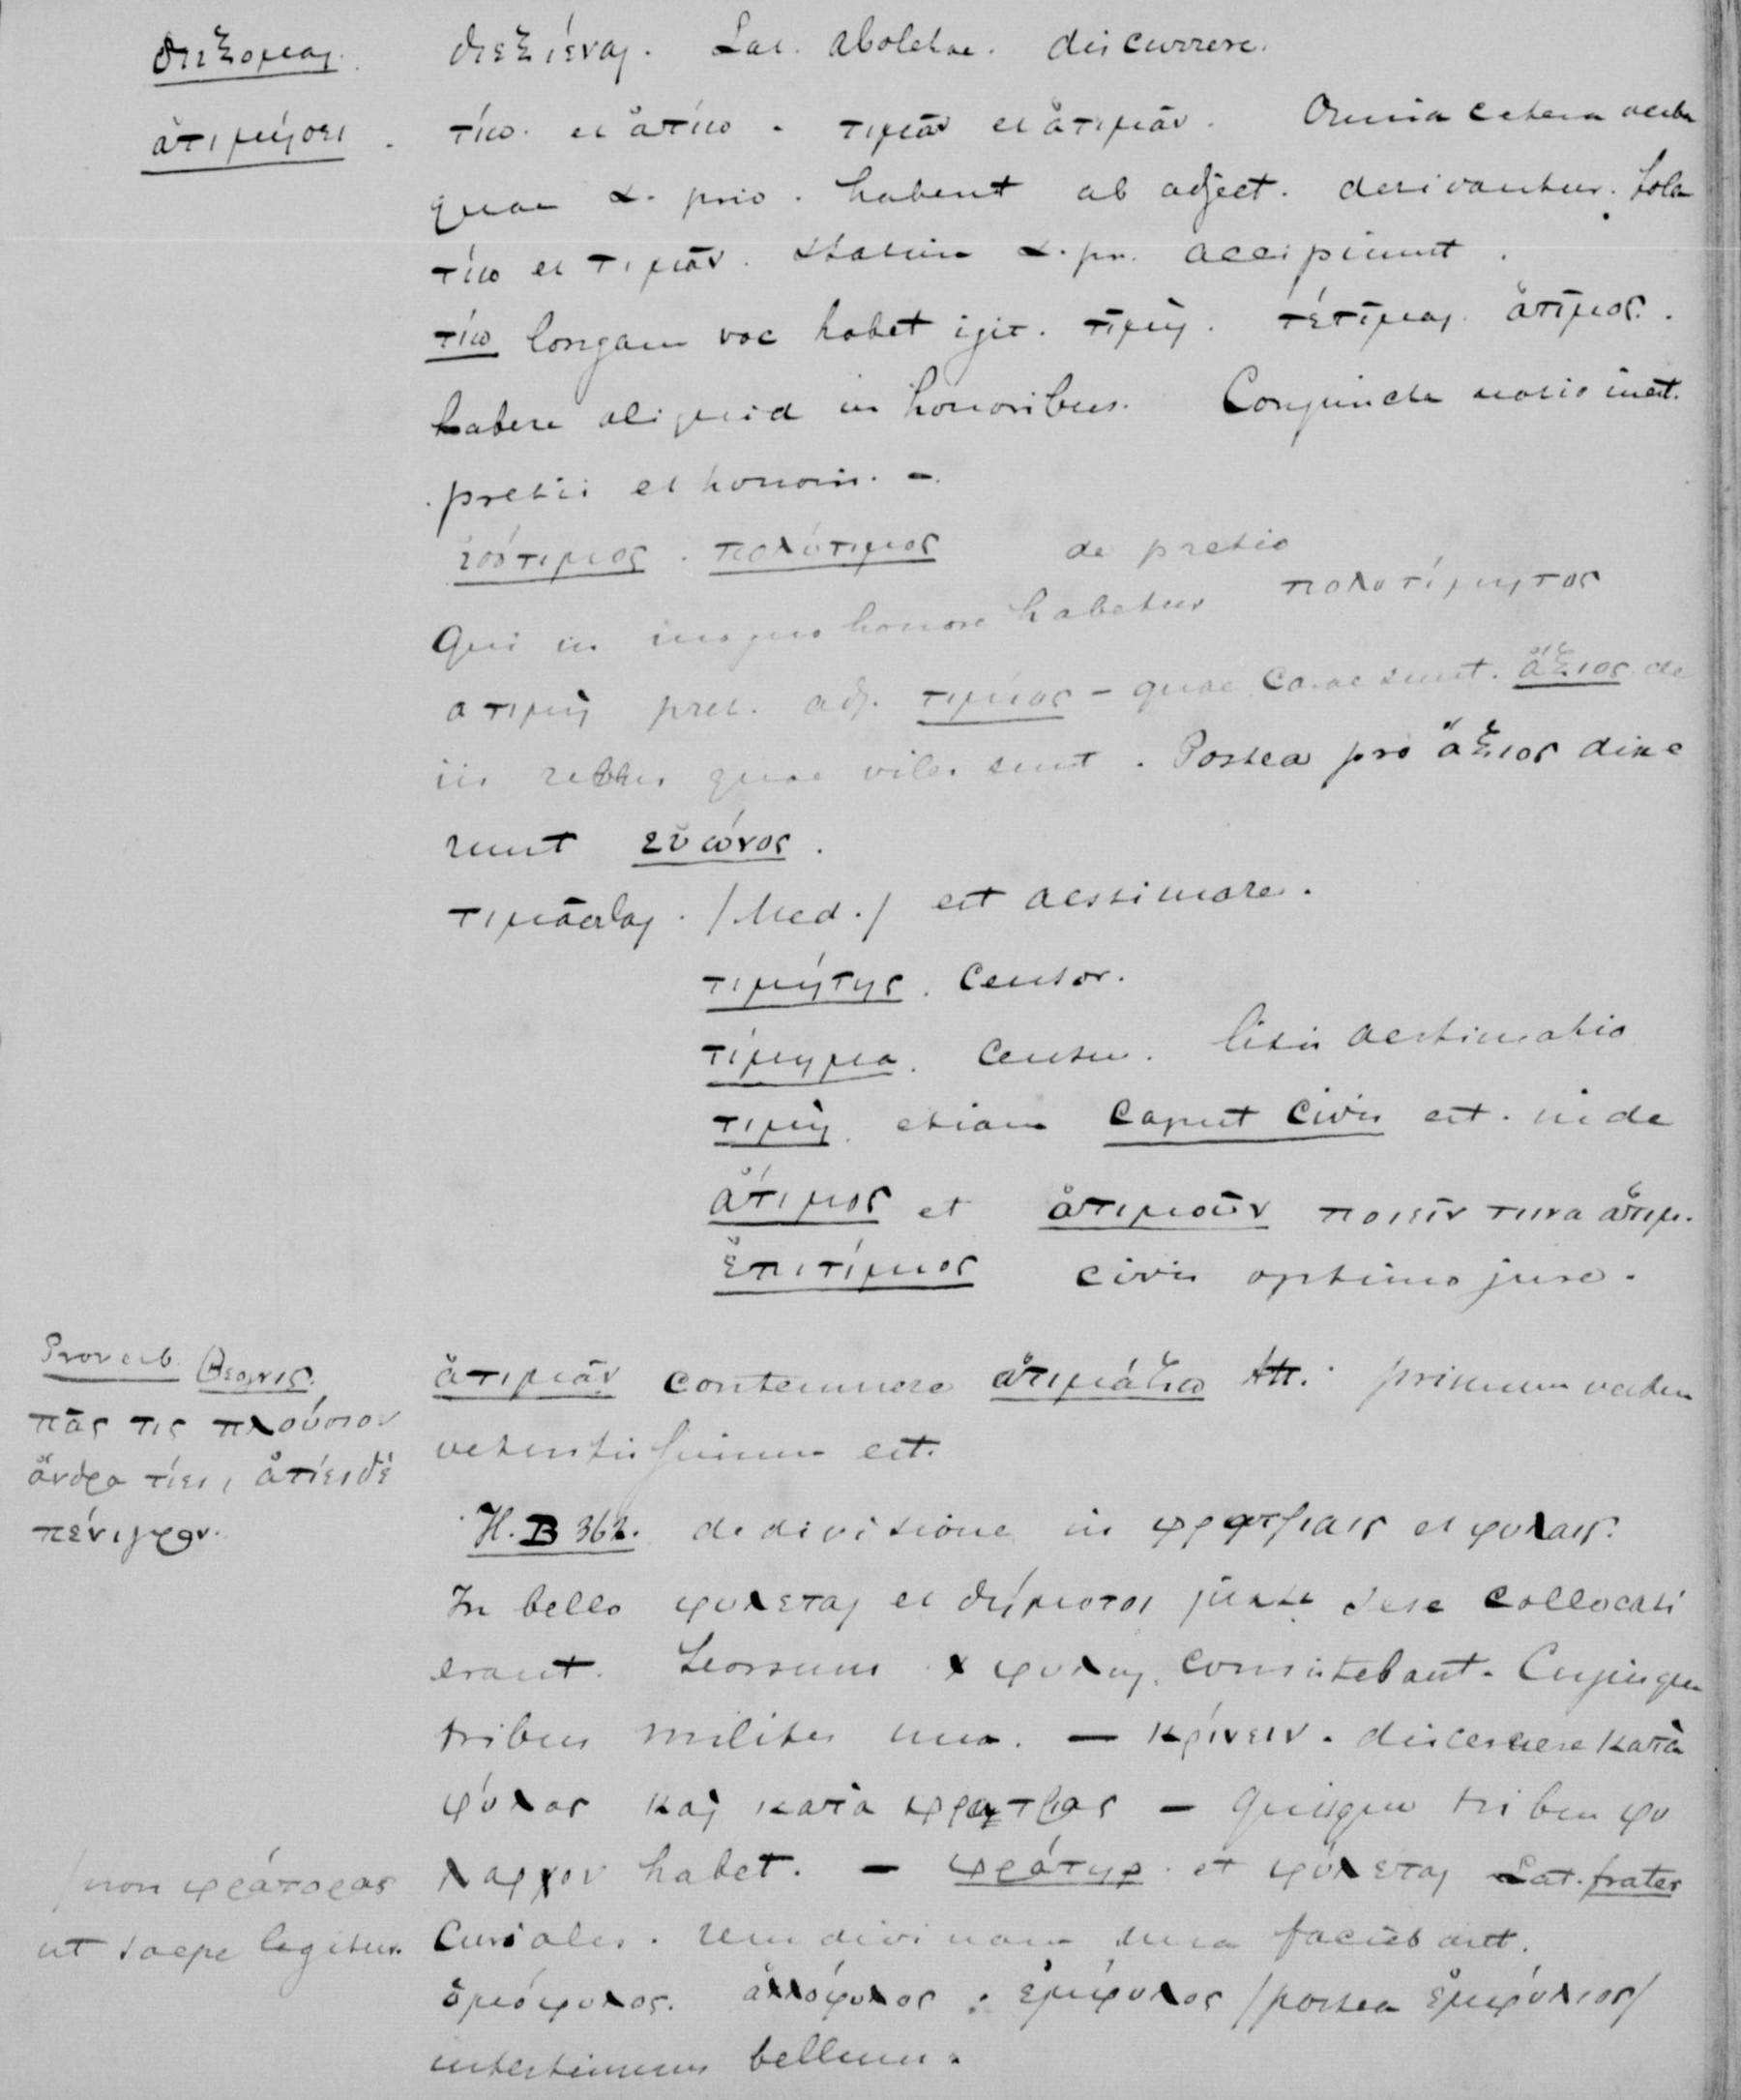 διίξομαι. διεξιέναι. Lat. aboletae. discurrere.
ἀτιμήσει. τίω et ἀτίω. τιμᾶν et ἀτιμᾶν. Omnia cetera verba
quae α. priv. habent ab adject. derivantur. Sola
τίω et τιμᾶν. statim α. pr. accipiunt.
τίω longam voc habet igit. τῑμή. τέτῑμαι. ἄτῑμος.
habere aliquid in honoribus. Conjuncta notio inest.
pretii et honoris. –
ἰσότιμος. πολύτιμος de pretio
Qui in magno honore habetur πολυτίμητος
α τιμή pret. adj. τιμίος – quae carae sunt. ἄξιος de
iis rebus quae viles sunt. Postea pro ἄξιος dixe
runt εὐώνος.
τιμᾶσθαι. /Med./ est aestimare.
τιμήτης. Censor.
τίμημα. Census. litis aestimatio
τιμή etiam caput civis est. inde
ἄτιμος et ἀτιμοῦν ποιεῖν τινα ἄτιμ.
ἐπιτίμος civis optimo jure.
Proverb. Θεογνις.
πᾶς τις πλούσιον
ἄνδρα τίει, ἀτίει δὲ
πένιχρον.
ἀτιμᾶν contemnere ἀτιμάζω Att. primum verbum
vetustissimum est.
Il. B 362. de divisione in φρατριαις et φυλαις.
In bello φυλεται et δήμοται juxta sese collocati
erant. Seorsum φυλαι consistebant. Cujusque
tribus milites una. – κρίνειν. discernere κατὰ
φύλας καὶ κατὰ φρατρας – quisque tribus φυ
λαρχον habet. – φράτηρ et φύλεται Lat. frater
/non φράτορας
ut saepe legitur.
Curiales. rem divinam una faciebant.
ὁμόφυλος. ἀλλόφυλος. ἐμφυλος /postea ἐμφύλιος/
intestinum bellum.